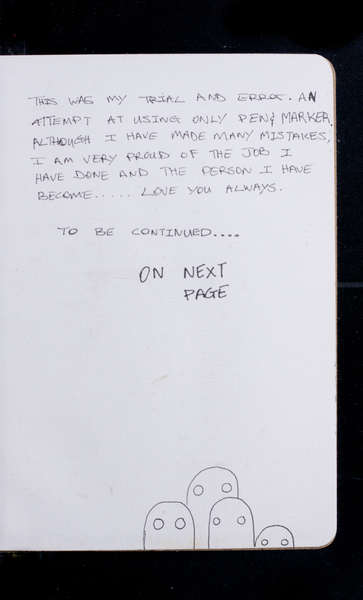 THIS WAS MY TRIAL AND ERROR. AN
ATTEMPT AT USING ONLY PEN & MARKER.
ALTHOUGH I HAVE MADE MANY MISTAKES,
I AM VERY PROUD OF THE JOB I
HAVE DONE AND THE PERSON I HAVE
BECOME..... LOVE YOU ALWAYS.
TO BE CONTINUED....
ON NEXT
PAGE